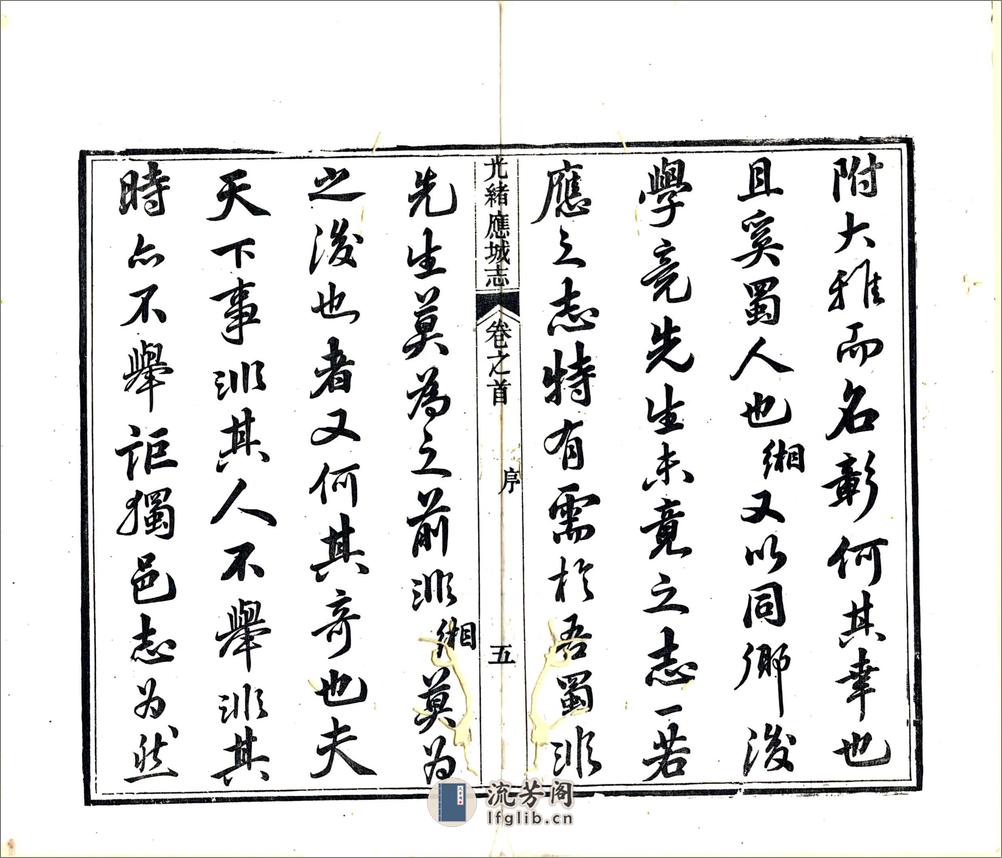 附大雅而名彰何其幸也
且奚蜀人也緗又以同鄉後
學竟先生未竟之志一若
應之志特有需於吾蜀非
光緒應城志 卷之首 序 五
先生莫為之前非緗莫為
之後也者又何其奇也夫
天下事非其人不舉非其
時亦不舉詎獨邑志為然
流芳阁
lfglib.cn